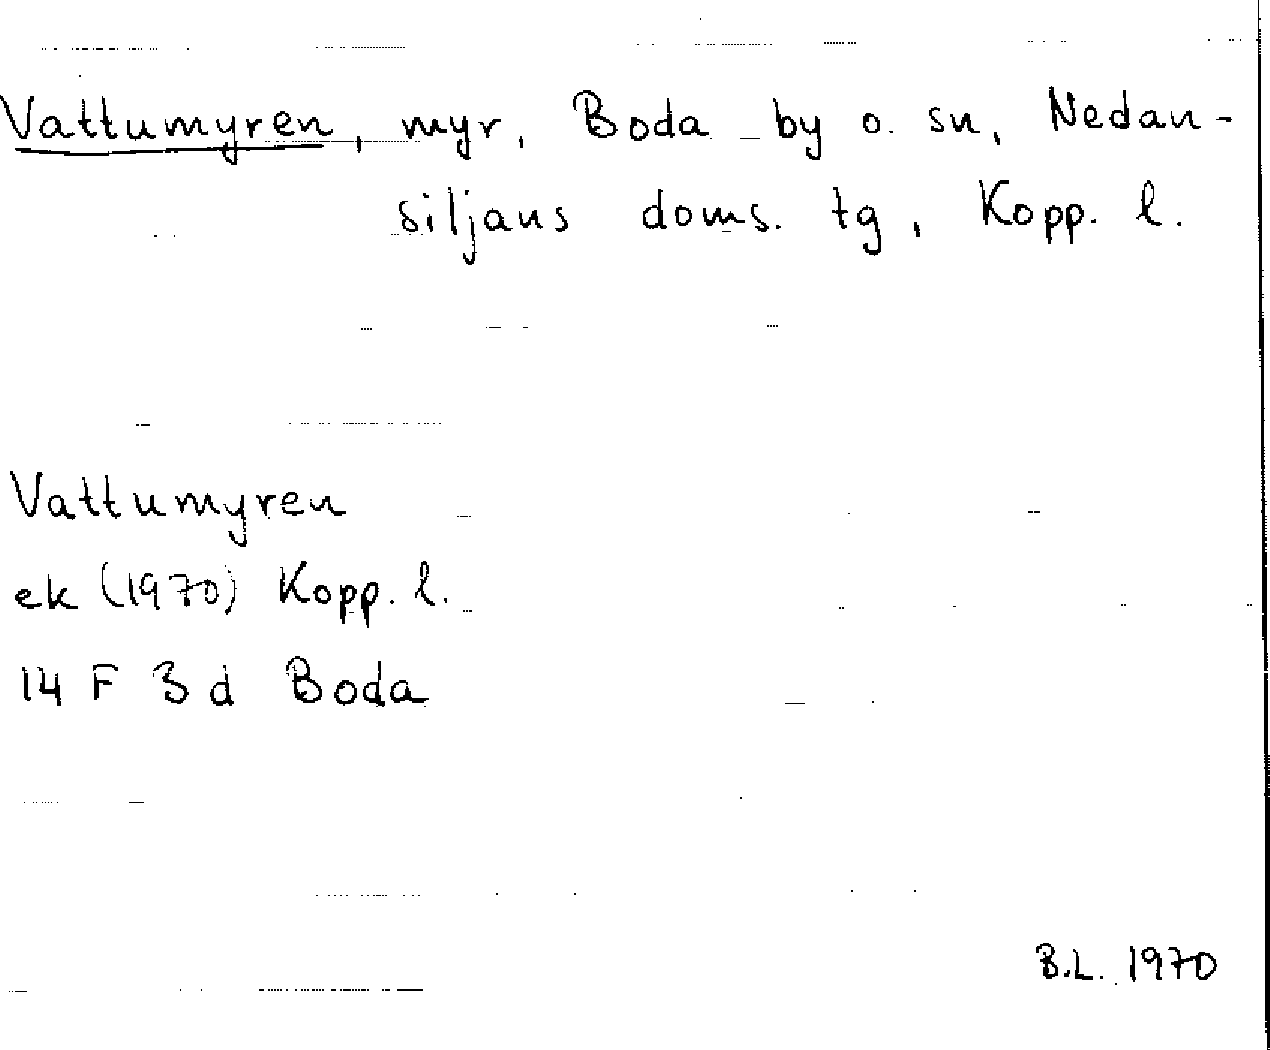 Vattumyren, myr, Boda by o. sn, Nedan-
siljans doms. tg, Kopp. l.
Vattumyren
ek (1970) Kopp. l.
14 F 3 d Boda
B.L. 1970